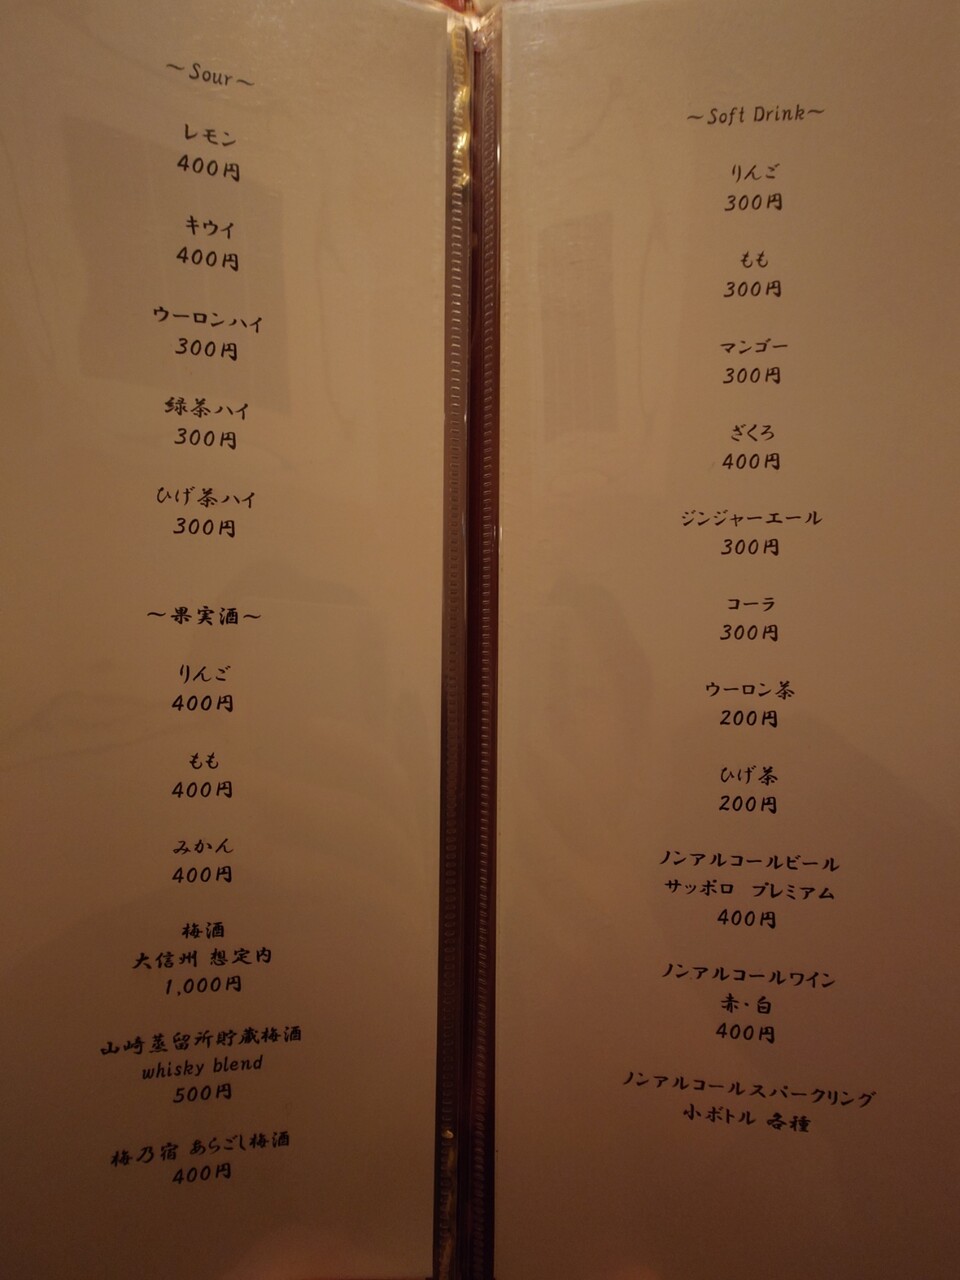 ～Sour～
レモン
400円
キウイ
400円
ウーロンハイ
300円
緑茶ハイ
300円
ひげ茶ハイ
300円
～果実酒～
りんご
400円
もも
400円
みかん
400円
梅酒
大信州 想定内
1,000円
山崎蒸留所貯蔵梅酒
whisky blend
500円
梅乃宿 あらごし梅酒
400円
～Soft Drink～
りんご
300円
もも
300円
マンゴー
300円
ざくろ
400円
ジンジャーエール
300円
コーラ
300円
ウーロン茶
200円
ひげ茶
200円
ノンアルコールビール
サッポロ プレミアム
400円
ノンアルコールワイン
赤・白
400円
ノンアルコールスパークリング
小ボトル 各種